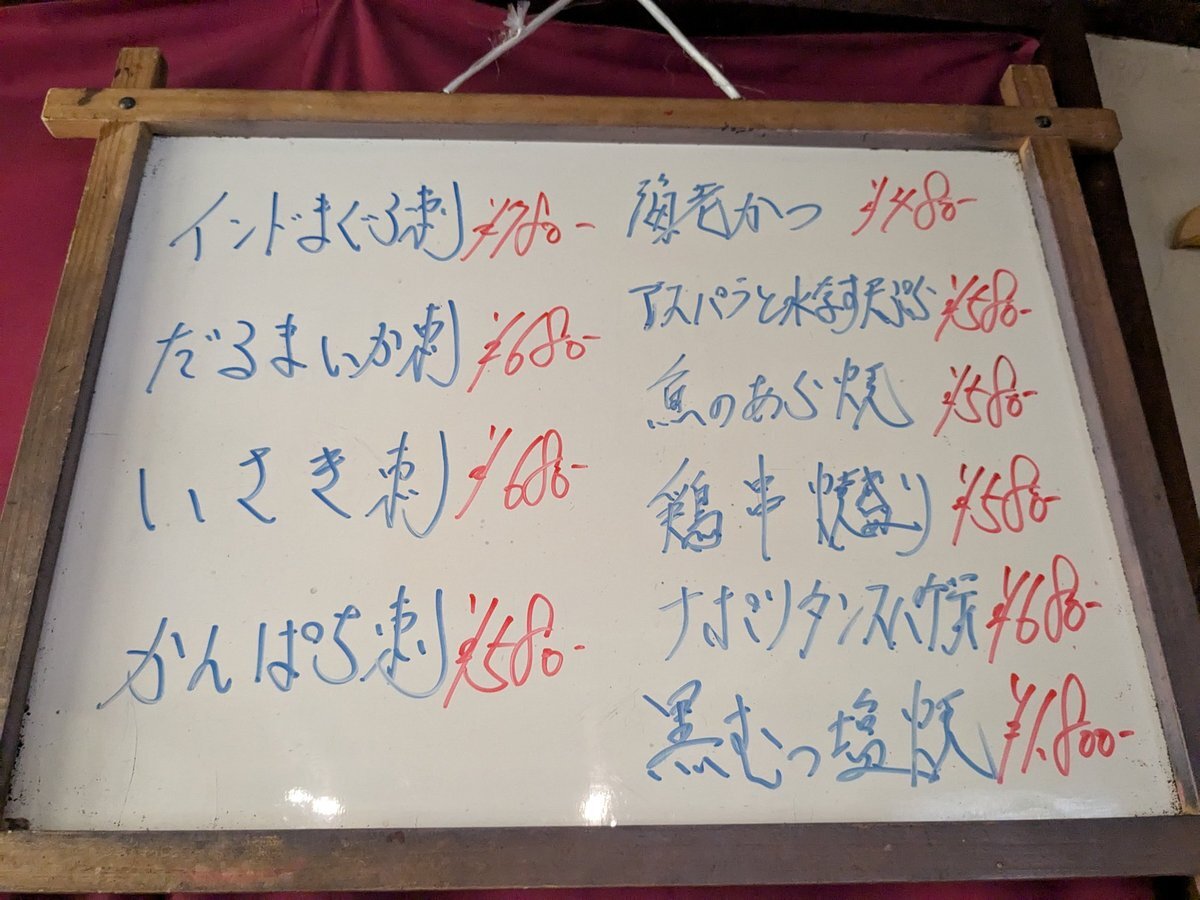 インドまぐろ刺 ¥780-
だるまいか刺 ¥680-
いさき刺 ¥680-
かんぱち刺 ¥580-
海老かつ ¥480-
アスパラと水なす天ぷら ¥580-
魚のあら焼 ¥580-
鶏串焼盛り ¥580-
ナポリタンスパゲティ ¥680-
黒むつ塩焼 ¥1,800-